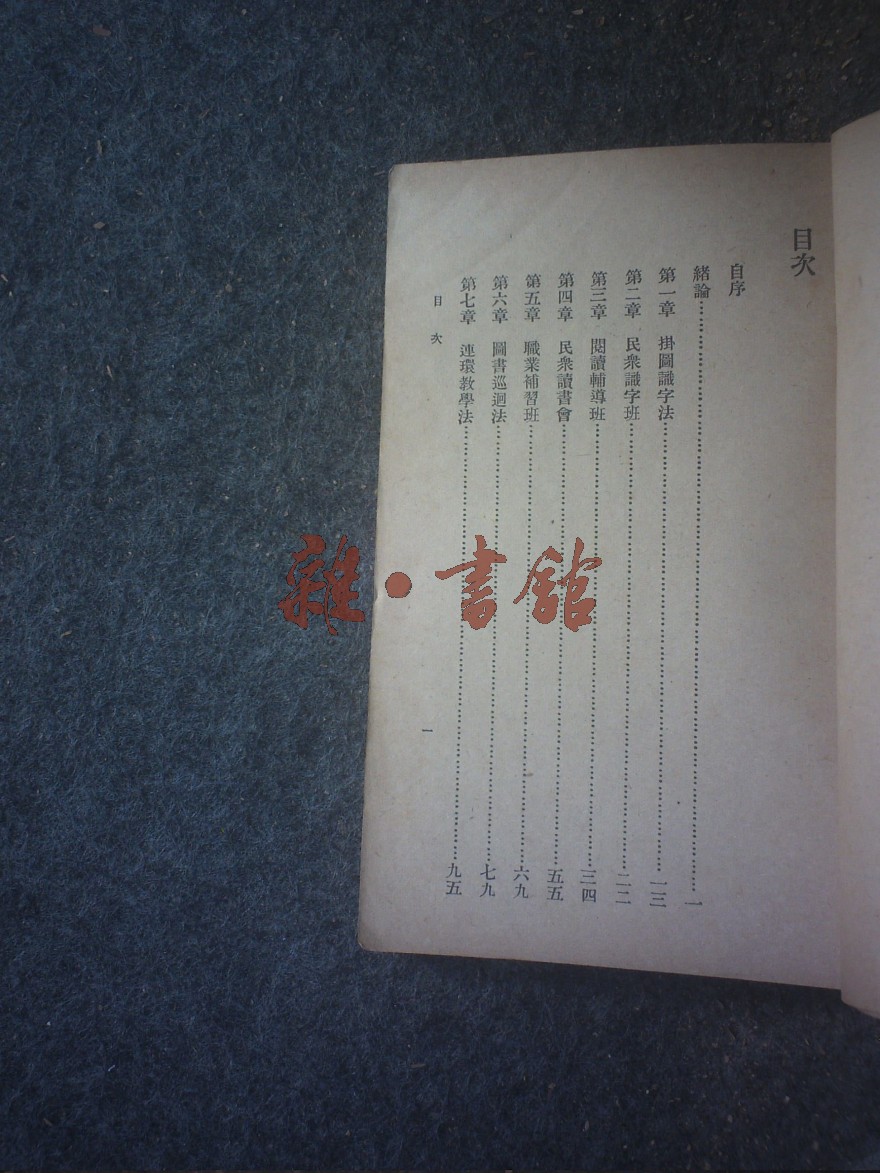 目次
自序
緒論……一
第一章 掛圖識字法……一三
第二章 民衆識字班……二二
第三章 閱讀輔導班……三四
第四章 民衆讀書會……五五
第五章 職業補習班……六九
第六章 圖書巡迴法……七九
第七章 連環教學法……九五
目次
一
雜·書館